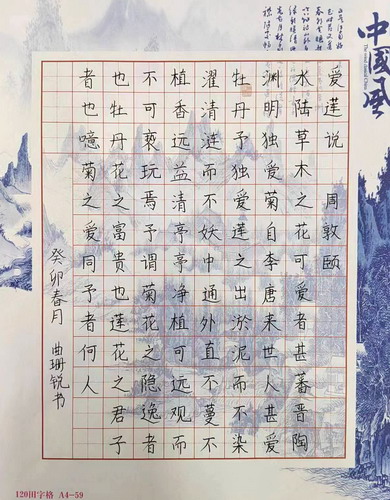 中國風
爱莲说 周敦颐
水陆草木之花可爱者甚蕃晋陶
渊明独爱菊自李唐来世人甚爱
牡丹予独爱莲之出淤泥而不染
濯清涟而不妖中通外直不蔓不
植香远益清亭亭净植可远观而
不可亵玩焉予谓菊花之隐逸者
也牡丹花之富贵也莲花之君子
者也噫菊之爱同予者何人
癸卯春月 曲珊锐书
120田字格 A4-59